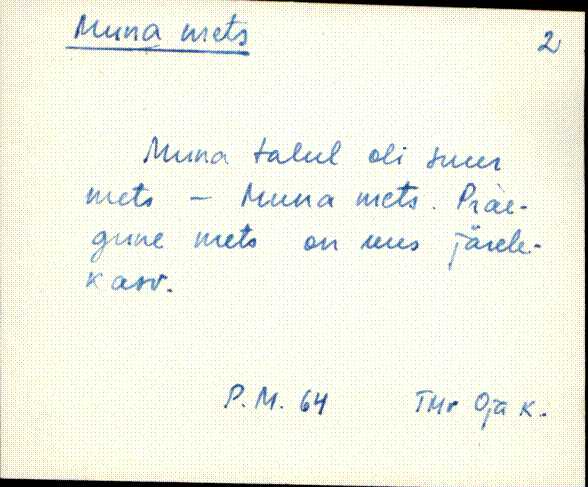 Muna mets
2
Muna talul oli suur
mets – Muna mets. Präe-
gune mets on uus järele-
kasv.
P.M. 64 TMr Oja k.